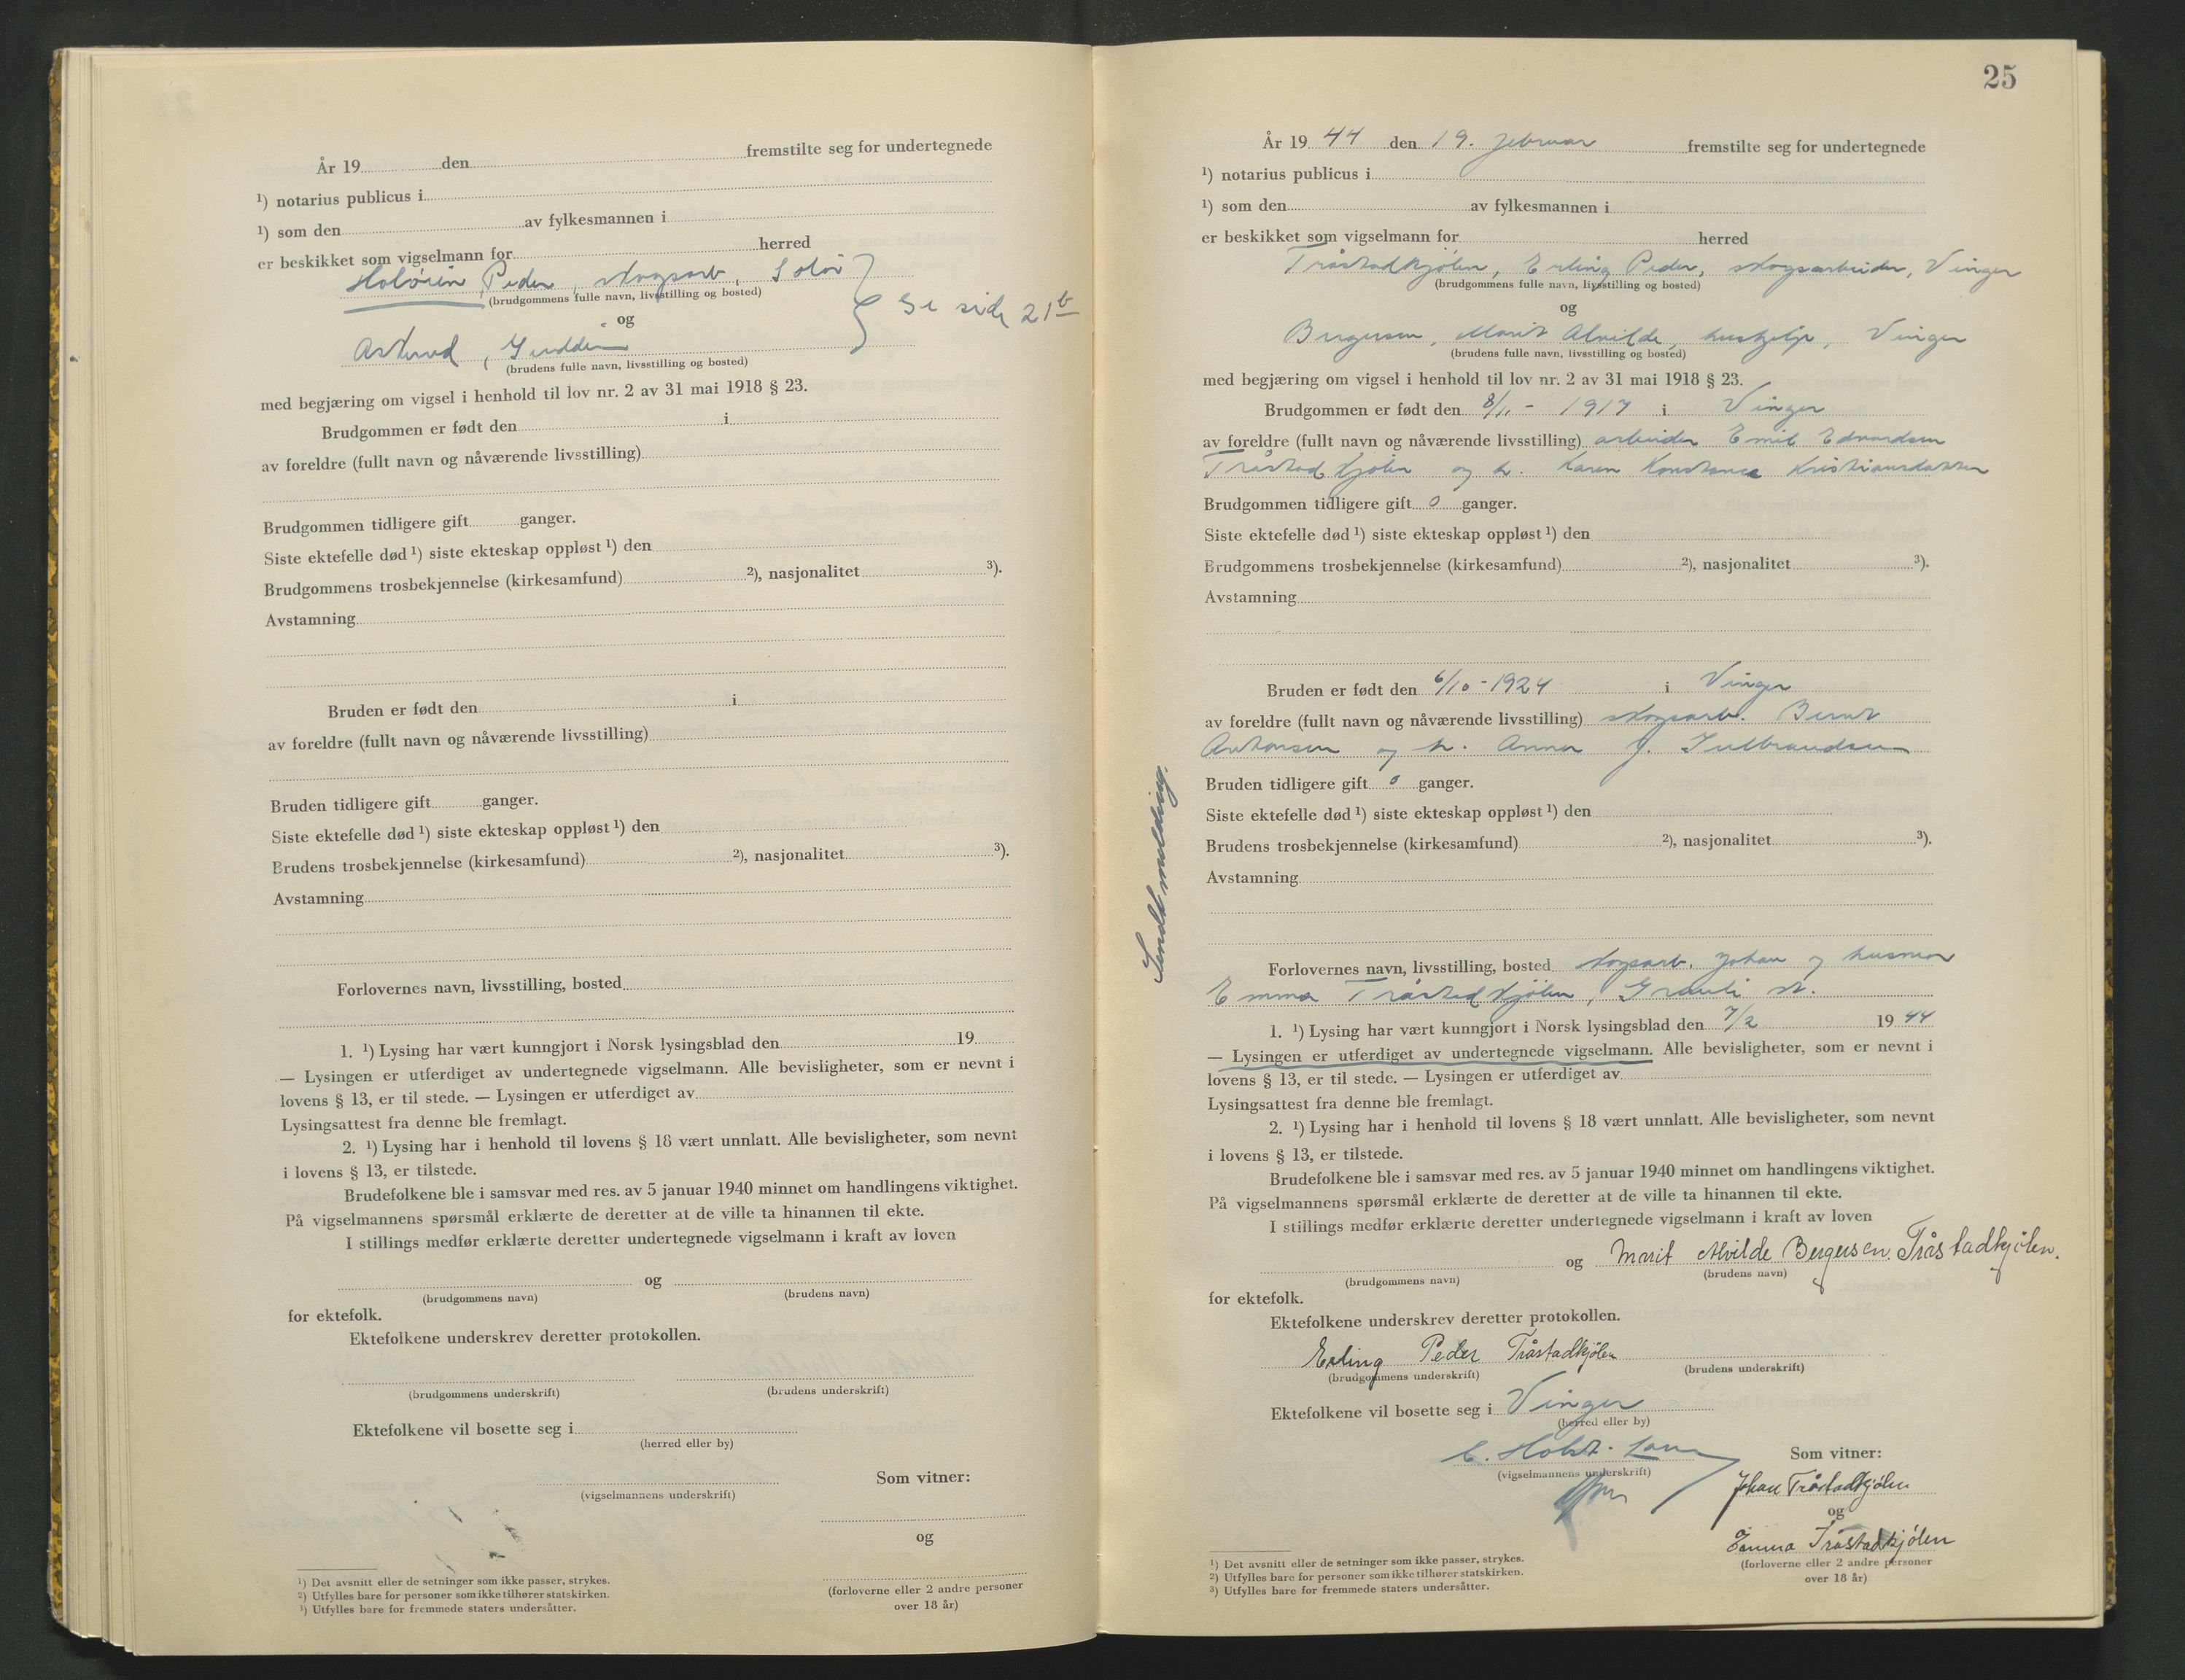 År 19 den fremstilte seg for undertegnede
¹) notarius publicus i
¹) som den av fylkesmannen i
er beskikket som vigselmann for herred
Holøien, Peder, skogsarb., Solør
(brudgommens fulle navn, livsstilling og bosted)
og
Se side 21b
Asterud,
(brudens fulle navn, livsstilling og bosted)
med begjæring om vigsel i henhold til lov nr. 2 av 31 mai 1918 § 23.
Brudgommen er født den i
av foreldre (fullt navn og nåværende livsstilling)
Brudgommen tidligere gift ganger.
Siste ektefelle død ¹) siste ekteskap oppløst ¹) den
Brudgommens trosbekjennelse (kirkesamfund) ²), nasjonalitet ³).
Avstamning
Bruden er født den i
av foreldre (fullt navn og nåværende livsstilling)
Bruden tidligere gift ganger.
Siste ektefelle død ¹) siste ekteskap oppløst ¹) den
Brudens trosbekjennelse (kirkesamfund) ²), nasjonalitet ³).
Avstamning
Forlovernes navn, livsstilling, bosted
1. ¹) Lysing har vært kunngjort i Norsk lysingsblad den 19
— Lysingen er utferdiget av undertegnede vigselmann. Alle bevisligheter, som er nevnt i
lovens § 13, er til stede. — Lysingen er utferdiget av
Lysingsattest fra denne ble fremlagt.
2. ¹) Lysing har i henhold til lovens § 18 vært unnlatt. Alle bevisligheter, som nevnt
i lovens § 13, er tilstede.
Brudefolkene ble i samsvar med res. av 5 januar 1940 minnet om handlingens viktighet.
På vigselmannens spørsmål erklærte de deretter at de ville ta hinannen til ekte.
I stillings medfør erklærte deretter undertegnede vigselmann i kraft av loven
og
(brudgommens navn) (brudens navn)
for ektefolk.
Ektefolkene underskrev deretter protokollen.
(brudgommens underskrift) (brudens underskrift)
Ektefolkene vil bosette seg i
(herred eller by)
Som vitner:
(vigselmannens underskrift)
og
(forloverne eller 2 andre personer
over 18 år)
¹) Det avsnitt eller de setninger som ikke passer, strykes.
²) Utfylles bare for personer som ikke tilhører statskirken.
³) Utfylles bare for fremmede staters undersåtter.
25
År 19 44 den 19. februar fremstilte seg for undertegnede
¹) notarius publicus i
¹) som den av fylkesmannen i
er beskikket som vigselmann for herred
Tråstadkjølen, Erling Peder, skogsarbeider, Vinger
(brudgommens fulle navn, livsstilling og bosted)
og
Bergersen, Marit Alvilde, hushjelp, Vinger
(brudens fulle navn, livsstilling og bosted)
med begjæring om vigsel i henhold til lov nr. 2 av 31 mai 1918 § 23.
Brudgommen er født den 8/1 - 1917 i Vinger
av foreldre (fullt navn og nåværende livsstilling) arbeider Emil Edvardsen
Tråstadkjølen og h. Karen Konstance Kristiansdatter
Brudgommen tidligere gift 0 ganger.
Siste ektefelle død ¹) siste ekteskap oppløst ¹) den
Brudgommens trosbekjennelse (kirkesamfund) ²), nasjonalitet ³).
Avstamning
Bruden er født den 6/10 - 1924 i Vinger
av foreldre (fullt navn og nåværende livsstilling) skogsarb. Bernt
Antonsen og h. Anna J. Gulbrandsen
Bruden tidligere gift 0 ganger.
Siste ektefelle død ¹) siste ekteskap oppløst ¹) den
Brudens trosbekjennelse (kirkesamfund) ²), nasjonalitet ³).
Avstamning
Sendt melding.
Forlovernes navn, livsstilling, bosted skogsarb. Johan og husmor
Emma Tråstadkjølen, Granli st.
1. ¹) Lysing har vært kunngjort i Norsk lysingsblad den 7/2 19 44
— Lysingen er utferdiget av undertegnede vigselmann. Alle bevisligheter, som er nevnt i
lovens § 13, er til stede. — Lysingen er utferdiget av
Lysingsattest fra denne ble fremlagt.
2. ¹) Lysing har i henhold til lovens § 18 vært unnlatt. Alle bevisligheter, som nevnt
i lovens § 13, er tilstede.
Brudefolkene ble i samsvar med res. av 5 januar 1940 minnet om handlingens viktighet.
På vigselmannens spørsmål erklærte de deretter at de ville ta hinannen til ekte.
I stillings medfør erklærte deretter undertegnede vigselmann i kraft av loven
og Marit Alvilde Bergersen Tråstadkjølen.
(brudgommens navn) (brudens navn)
for ektefolk.
Ektefolkene underskrev deretter protokollen.
Erling Peder Tråstadkjølen
(brudgommens underskrift) (brudens underskrift)
Ektefolkene vil bosette seg i Vinger
(herred eller by)
C. Holst-
Som vitner:
(vigselmannens underskrift)
Johan Tråstadkjølen
og
Emma Tråstadkjølen
(forloverne eller 2 andre personer
over 18 år)
¹) Det avsnitt eller de setninger som ikke passer, strykes.
²) Utfylles bare for personer som ikke tilhører statskirken.
³) Utfylles bare for fremmede staters undersåtter.